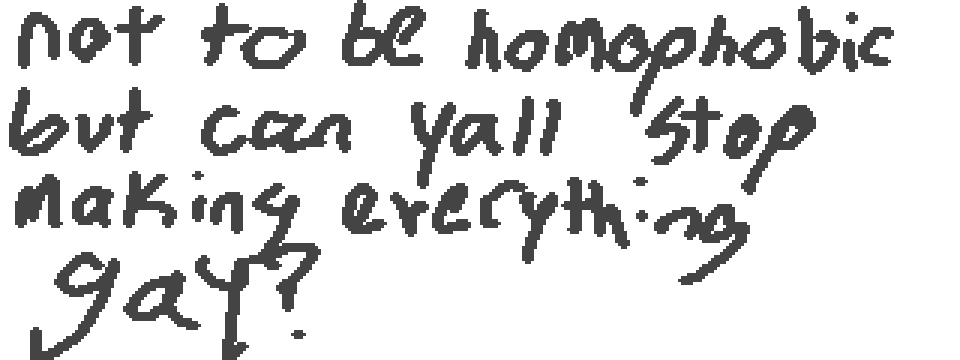 not to be homophobic
but can yall stop
making everything
gay?